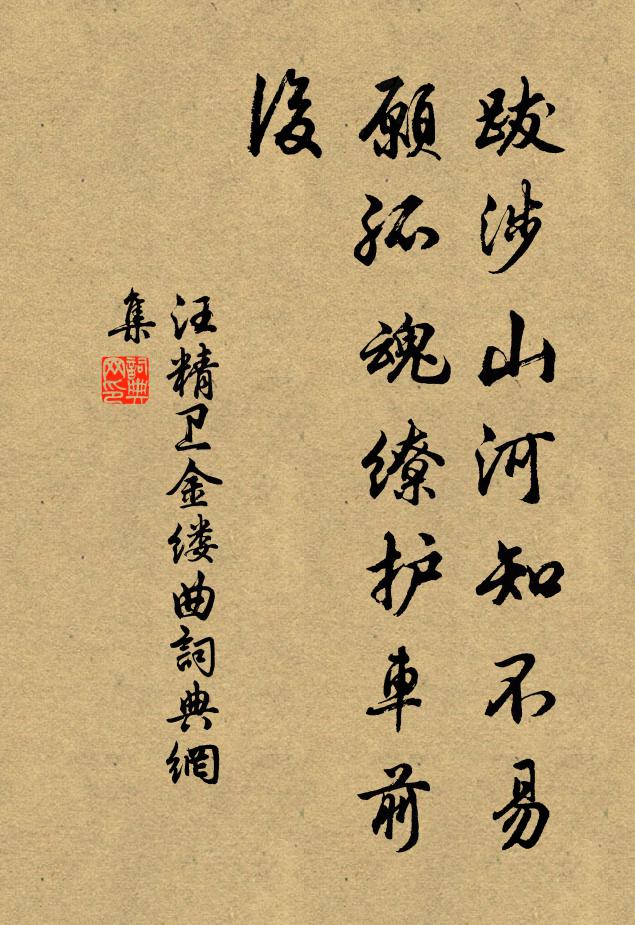 跋涉山河知不易
願孤魂缭护車前
後
汪精卫金缕曲詞典網
集
詞典
网印